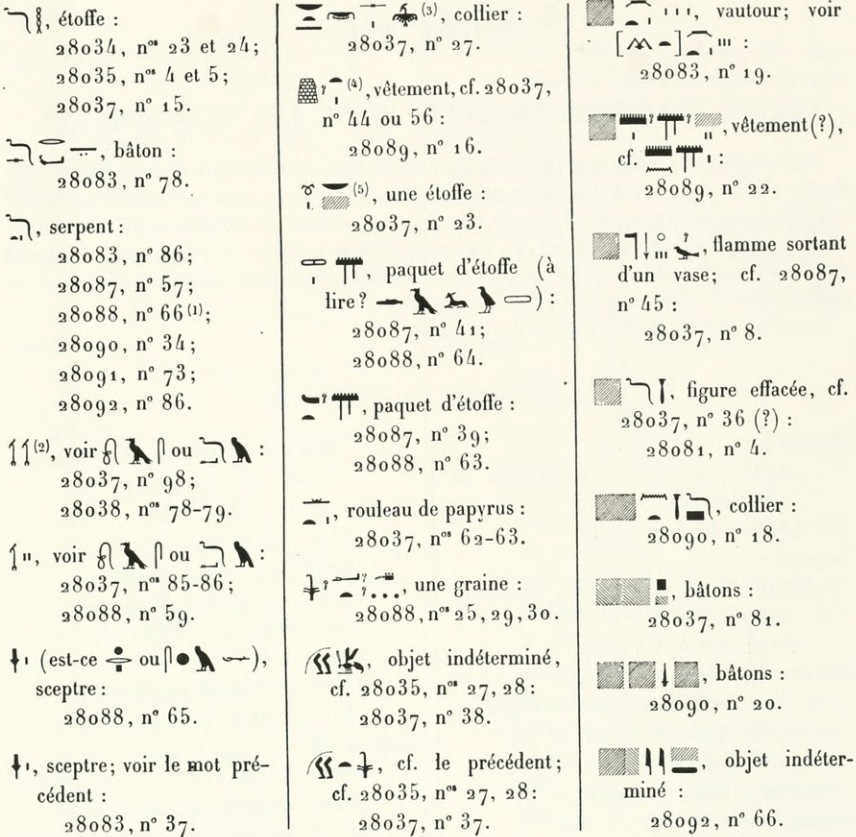 , étoffe :
28034, nos 23 et 24;
28035, nos 4 et 5;
28037, n° 15.
, bâton :
28083, n° 78.
, serpent :
28083, n° 86;
28087, n° 57;
28088, n° 66 (1);
28090, n° 34;
28091, n° 73;
28092, n° 86.
(2), voir ou :
28037, n° 98;
28038, nos 78-79.
, voir ou :
28037, nos 85-86;
28088, n° 59.
(est-ce ou ),
sceptre :
28088, n° 65.
, sceptre; voir le mot pré-
cédent :
28083, n° 37.
(3), collier :
28037, n° 27.
? (4), vêtement, cf. 28037,
n° 44 ou 56 :
28089, n° 16.
(5), une étoffe :
28037, n° 23.
, paquet d'étoffe (à
lire? ) :
28087, n° 41;
28088, n° 64.
? , paquet d'étoffe :
28087, n° 39;
28088, n° 63.
, rouleau de papyrus :
28037, nos 62-63.
? ? , une graine :
28088, nos 25, 29, 30.
, objet indéterminé,
cf. 28035, nos 27, 28 :
28037, n° 38.
, cf. le précédent;
cf. 28035, nos 27, 28 :
28037, n° 37.
, vautour; voir
[ ] :
28083, n° 19.
? ? , vêtement (?),
cf. :
28089, n° 22.
? , flamme sortant
d'un vase; cf. 28087,
n° 45 :
28037, n° 8.
, figure effacée, cf.
28037, n° 36 (?) :
28081, n° 4.
, collier :
28090, n° 18.
, bâtons :
28037, n° 81.
, bâtons :
28090, n° 20.
, objet indéter-
miné :
28092, n° 66.